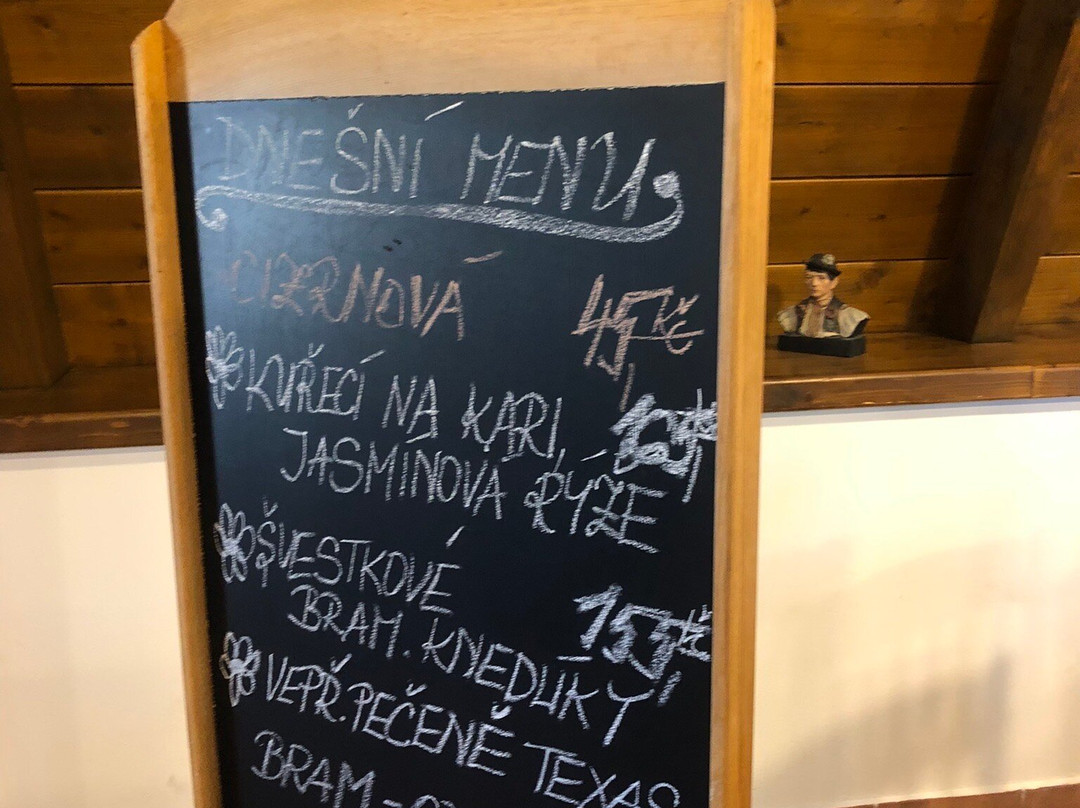 DNEŠNÍ MENU
CIZRNOVÁ 45,- Kč
KUŘECÍ NA KARI,
JASMÍNOVÁ RÝŽE
ŠVESTKOVÉ
BRAM. KNEDLÍKY
VEPŘ. PEČENĚ TEXAS
BRAM -